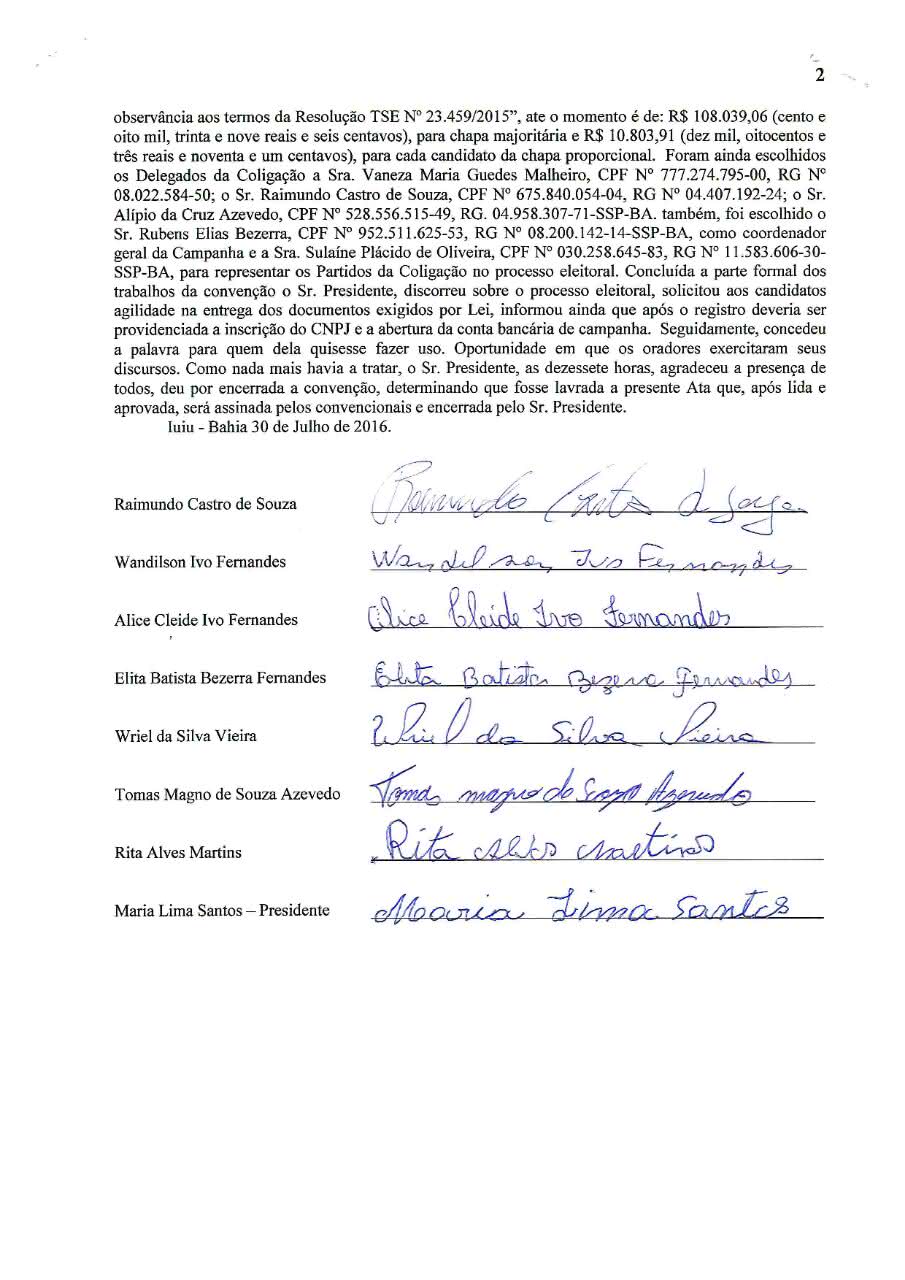 2
observância aos termos da Resolução TSE Nº 23.459/2015”, ate o momento é de: R$ 108.039,06 (cento e
oito mil, trinta e nove reais e seis centavos), para chapa majoritária e R$ 10.803,91 (dez mil, oitocentos e
três reais e noventa e um centavos), para cada candidato da chapa proporcional. Foram ainda escolhidos
os Delegados da Coligação a Sra. Vaneza Maria Guedes Malheiro, CPF Nº 777.274.795-00, RG Nº
08.022.584-50; o Sr. Raimundo Castro de Souza, CPF Nº 675.840.054-04, RG Nº 04.407.192-24; o Sr.
Alípio da Cruz Azevedo, CPF Nº 528.556.515-49, RG. 04.958.307-71-SSP-BA. também, foi escolhido o
Sr. Rubens Elias Bezerra, CPF Nº 952.511.625-53, RG Nº 08.200.142-14-SSP-BA, como coordenador
geral da Campanha e a Sra. Sulaíne Plácido de Oliveira, CPF Nº 030.258.645-83, RG Nº 11.583.606-30-
SSP-BA, para representar os Partidos da Coligação no processo eleitoral. Concluída a parte formal dos
trabalhos da convenção o Sr. Presidente, discorreu sobre o processo eleitoral, solicitou aos candidatos
agilidade na entrega dos documentos exigidos por Lei, informou ainda que após o registro deveria ser
providenciada a inscrição do CNPJ e a abertura da conta bancária de campanha. Seguidamente, concedeu
a palavra para quem dela quisesse fazer uso. Oportunidade em que os oradores exercitaram seus
discursos. Como nada mais havia a tratar, o Sr. Presidente, as dezessete horas, agradeceu a presença de
todos, deu por encerrada a convenção, determinando que fosse lavrada a presente Ata que, após lida e
aprovada, será assinada pelos convencionais e encerrada pelo Sr. Presidente.
Iuiu - Bahia 30 de Julho de 2016.
Raimundo Castro de Souza Raimundo Castro d Souza
Wandilson Ivo Fernandes Wandilson Ivo Fernandes
Alice Cleide Ivo Fernandes Alice Cleide Ivo Fernandes
Elita Batista Bezerra Fernandes Elita Batista Bezerra Fernandes
Wriel da Silva Vieira Wriel da Silva Vieira
Tomas Magno de Souza Azevedo Tomas magno de Souza Azevedo
Rita Alves Martins Rita Alves Martins
Maria Lima Santos – Presidente Maria Lima Santos